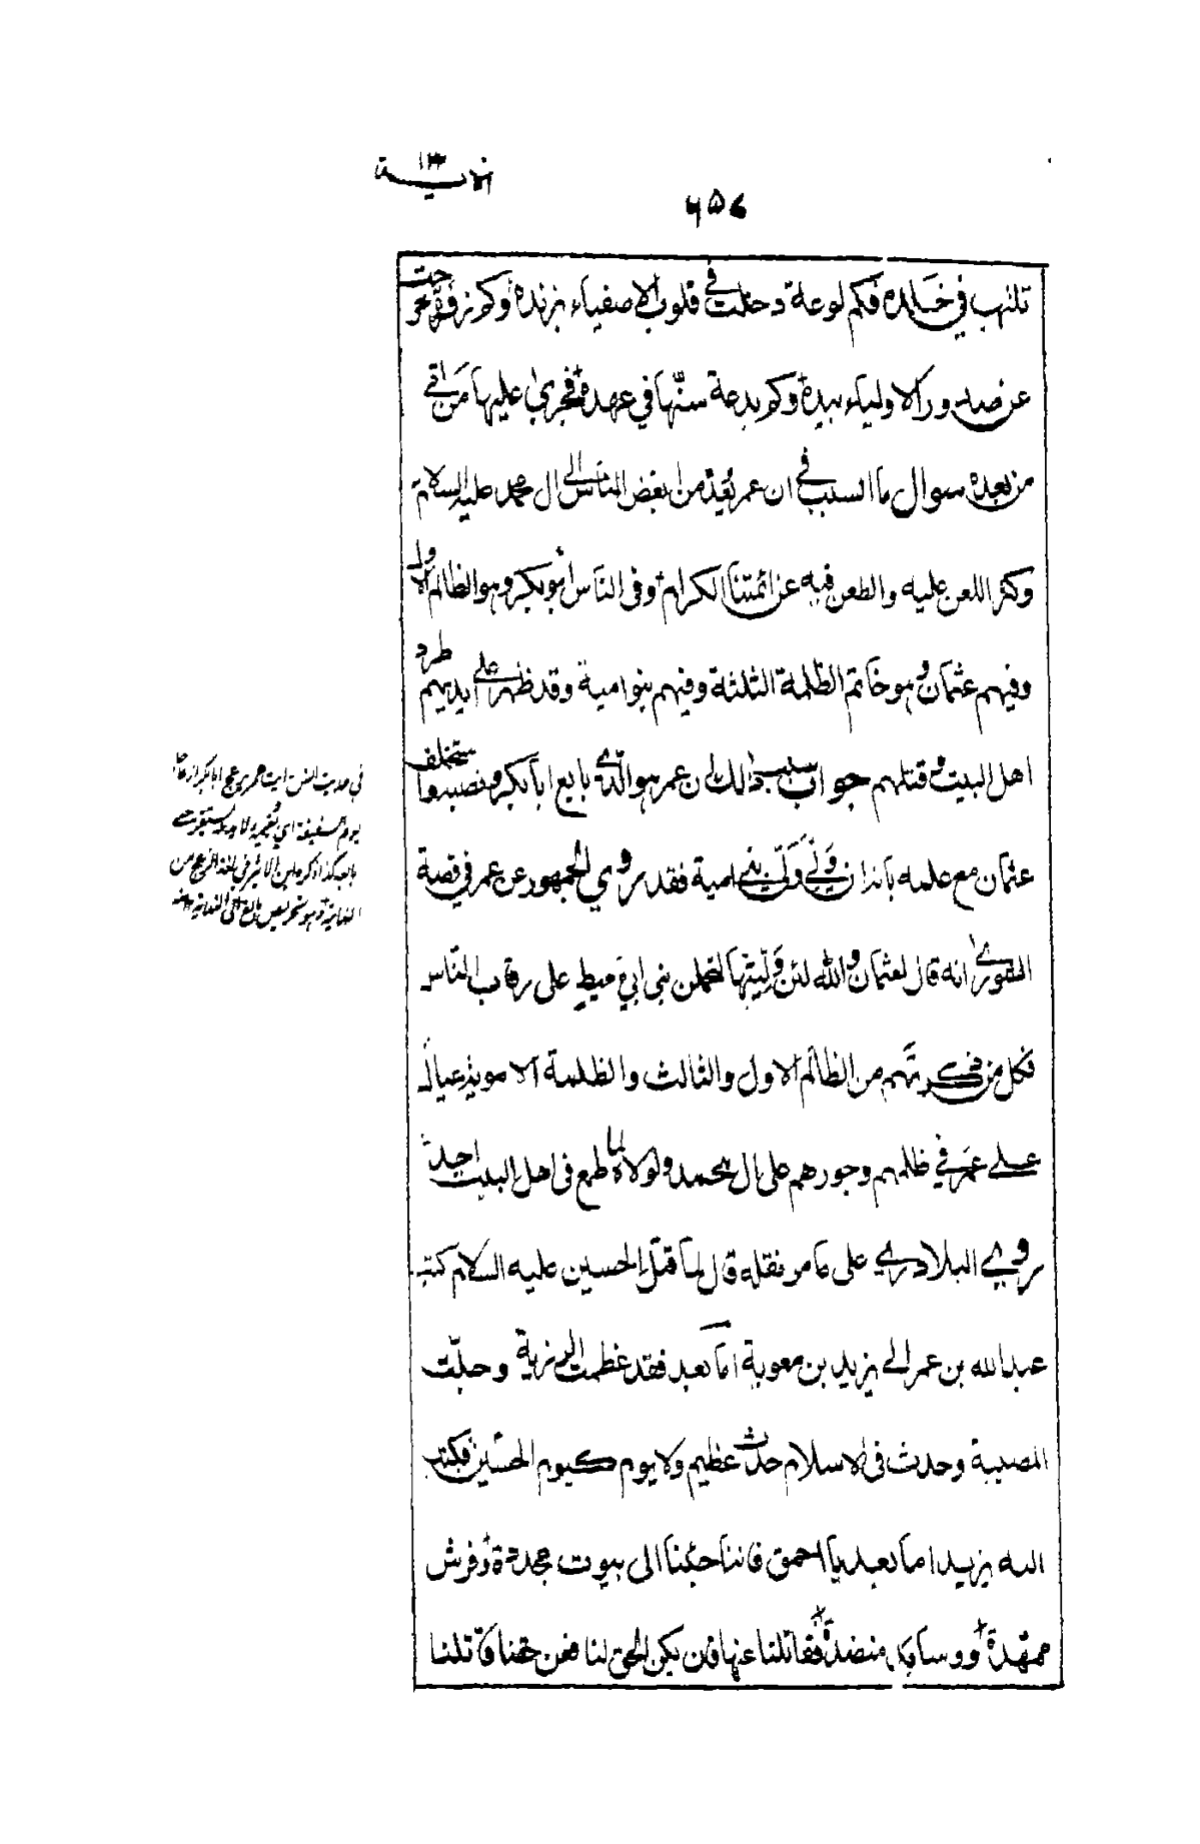 ١٣
الآية
٦٥٧
تلتهب في خلده فكم لوعة دخلت في قلوب الاصفياء بزنده وكم زفرة خرجت
عن صدور الاولياء بيده وكم بدعة سنّها في عهده فجرى عليها من اتى
من بعده سوال ما السبب في ان عمر يُعدّ من ابغض الناس الى ال محمد عليه السلام
وكثر اللعن عليه والطعن فيه عن ائمتنا الكرام وفى الناس أبو بكر وهو الظالم الاول
وفيهم عثمان وهو خاتم الظلمة الثلثة وفيهم بنو امية وقد ظهر على ايديهم طرد
اهل البيت وقتلهم جواب سبب ذالك ان عمر هو الذى بايع أبا بكر ونصبه واستخلف
عثمان مع علمه بانه ان ولى ولّى بنى امية فقد روي الجمهور عن عمر في قصة
الشورى انه قال لعثمان والله لئن وليتها لتحملن بنى ابي معيط على رقاب الناس
فكل من ذكرتهم من الظالم الاول والثالث والظلمة الاموية عيال
على عمر في ظلمهم وجورهم على ال محمد ولولاه لما طمع فى اهل البيت احد
روى البلاذري على ما مر نقله قال لما قتل الحسين عليه السلام كتب
عبد الله بن عمر الى يزيد بن معوية اما بعد فقد عظمت الرزية وجلّت
المصيبة وحدث فى الاسلام حدث عظيم ولا يوم كيوم الحسين فكتب
اليه يزيد اما بعد يا احمق فاننا جئنا الى بيوت مجددة وفرش
ممهّدة ووسائد منضدة فقاتلنا عنها فان يكن الحق لنا فعن حقنا قاتلنا